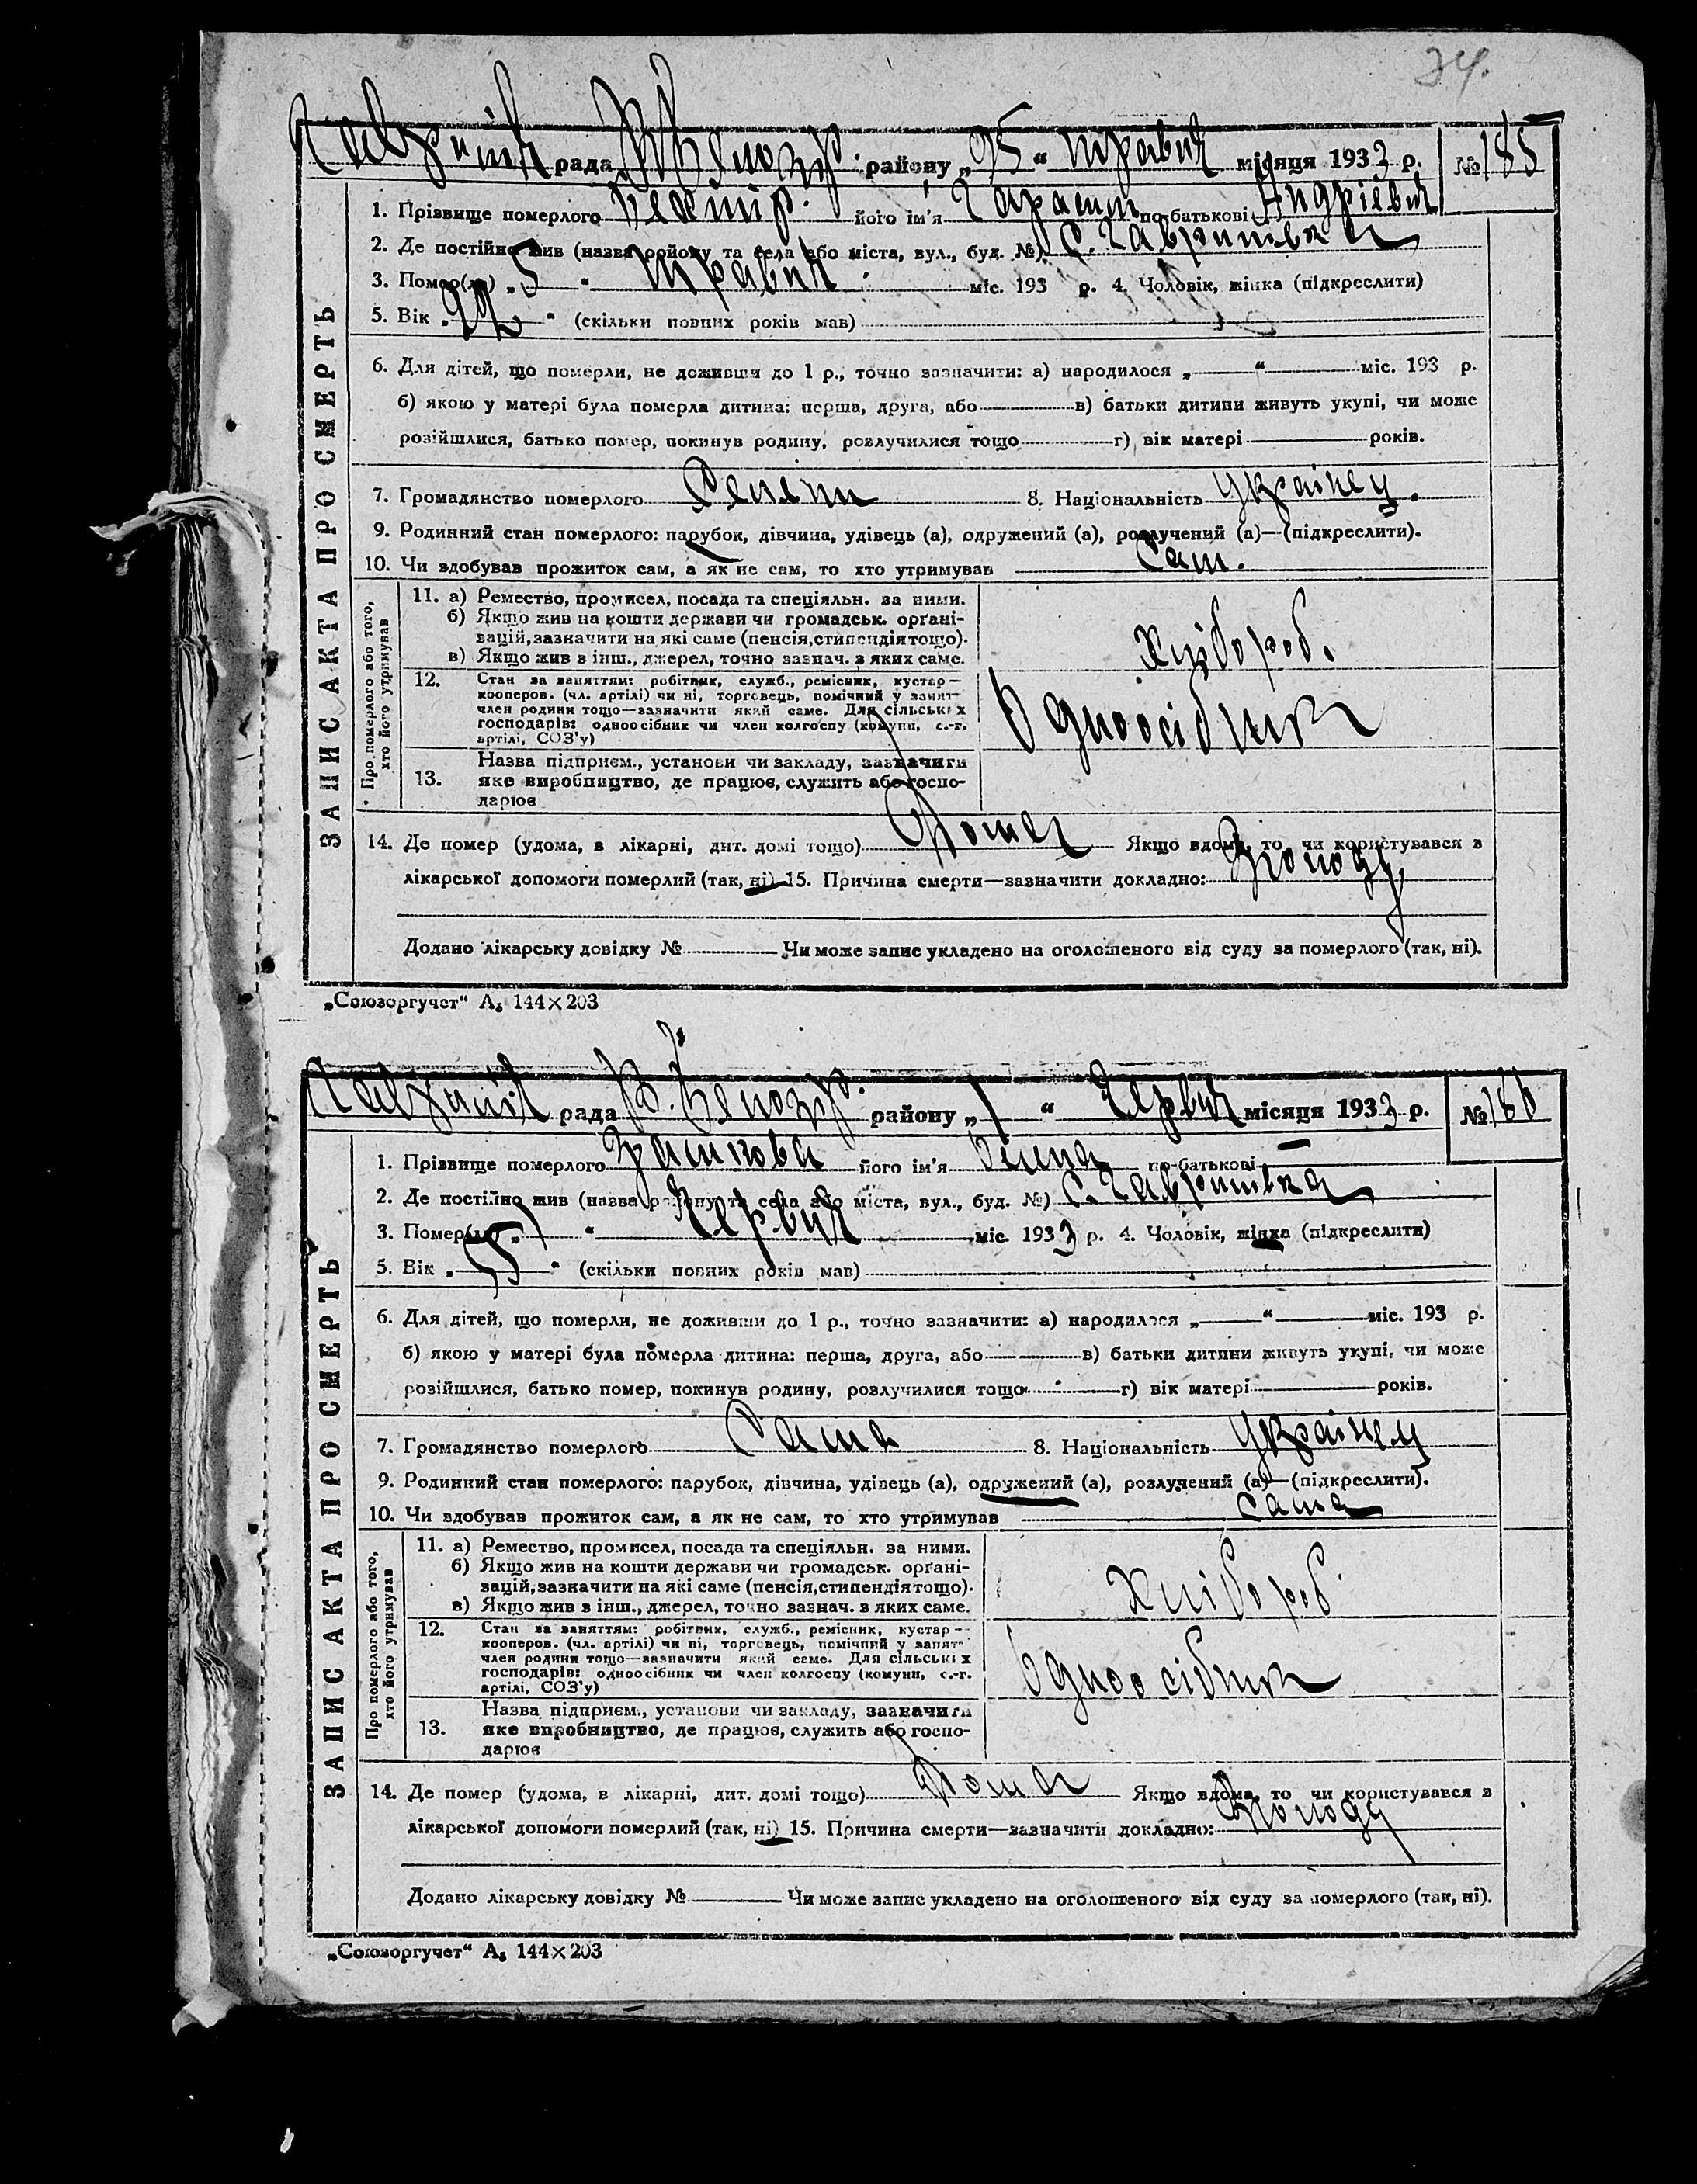 34.
рада району „25“ травня місяця 1933 р. № 185
ЗАПИС АКТА ПРО СМЕРТЬ
1. Прізвище померлого його ім'я Гарасим по-батькові Андрієвич
2. Де постійно жив (назва району та села або міста, вул., буд. №) с. Гавришівка
3. Помер(ла) „5“ травня міс. 193 р. 4. Чоловік, жінка (підкреслити)
5. Вік „ “ (скільки повних років мав)
6. Для дітей, що померли, не доживши до 1 р., точно зазначити: а) народилося „ “ міс. 193 р.
б) якою у матері була померла дитина: перша, друга, або в) батьки дитини живуть укупі, чи може
розійшлися, батько помер, покинув родину, розлучилися тощо г) вік матері років.
7. Громадянство померлого 8. Національність Українец.
9. Родинний стан померлого: парубок, дівчина, удівець (а), одружений (а), розлучений (а)—(підкреслити).
10. Чи здобував прожиток сам, а як не сам, то хто утримував Сам.
Про померлого або того, хто його утримував
11. а) Ремество, промисел, посада та спеціяльн. за ними.
б) Якщо жив на кошти держави чи громадськ. органі-
зацій, зазначити на які саме (пенсія, стипендія тощо).
в) Якщо жив з інш., джерел, точно зазнач. з яких саме.
Хлібороб.
12. Стан за заняттям: робітник, служб., ремісник, кустар—
кооперов. (чл. артілі) чи ні, торговець, помічний у занят-
член родини тощо—зазначити який саме. Для сільських
господарів: одноосібник чи член колгоспу (комуни, с.-г.
артілі, СОЗ'у)
Одноосібник
13. Назва підприєм., установи чи закладу, зазначити
яке виробництво, де працює, служить або госпо-
дарює
14. Де помер (удома, в лікарні, дит. домі тощо) Дома Якщо вдома, то чи користувався з
лікарської допомоги померлий (так, ні) 15. Причина смерти—зазначити докладно: Зголоду
Додано лікарську довідку № Чи може запис укладено на оголошеного від суду за померлого (так, ні).
„Союзоргучет“ А₅ 144×203
рада району „1“ червня місяця 1933 р. № 186
ЗАПИС АКТА ПРО СМЕРТЬ
1. Прізвище померлого його ім'я по-батькові —
2. Де постійно жив (назва району та села або міста, вул., буд. №) с. Гавришівка
3. Помер(ла) „1“ червня міс. 1933 р. 4. Чоловік, жінка (підкреслити)
5. Вік „ “ (скільки повних років мав)
6. Для дітей, що померли, не доживши до 1 р., точно зазначити: а) народилося „ “ міс. 193 р.
б) якою у матері була померла дитина: перша, друга, або в) батьки дитини живуть укупі, чи може
розійшлися, батько помер, покинув родину, розлучилися тощо г) вік матері років.
7. Громадянство померлого Сама 8. Національність Українец
9. Родинний стан померлого: парубок, дівчина, удівець (а), одружений (а), розлучений (а)—(підкреслити).
10. Чи здобував прожиток сам, а як не сам, то хто утримував Сама
Про померлого або того, хто його утримував
11. а) Ремество, промисел, посада та спеціяльн. за ними.
б) Якщо жив на кошти держави чи громадськ. органі-
зацій, зазначити на які саме (пенсія, стипендія тощо).
в) Якщо жив з інш., джерел, точно зазнач. з яких саме.
Хлібороб.
12. Стан за заняттям: робітник, служб., ремісник, кустар—
кооперов. (чл. артілі) чи ні, торговець, помічний у занят-
член родини тощо—зазначити який саме. Для сільських
господарів: одноосібник чи член колгоспу (комуни, с.-г.
артілі, СОЗ'у)
Одноосібник
13. Назва підприєм., установи чи закладу, зазначити
яке виробництво, де працює, служить або госпо-
дарює
14. Де помер (удома, в лікарні, дит. домі тощо) Дома Якщо вдома, то чи користувався з
лікарської допомоги померлий (так, ні) 15. Причина смерти—зазначити докладно: Зголоду
Додано лікарську довідку № Чи може запис укладено на оголошеного від суду за померлого (так, ні).
„Союзоргучет“ А₅ 144×203